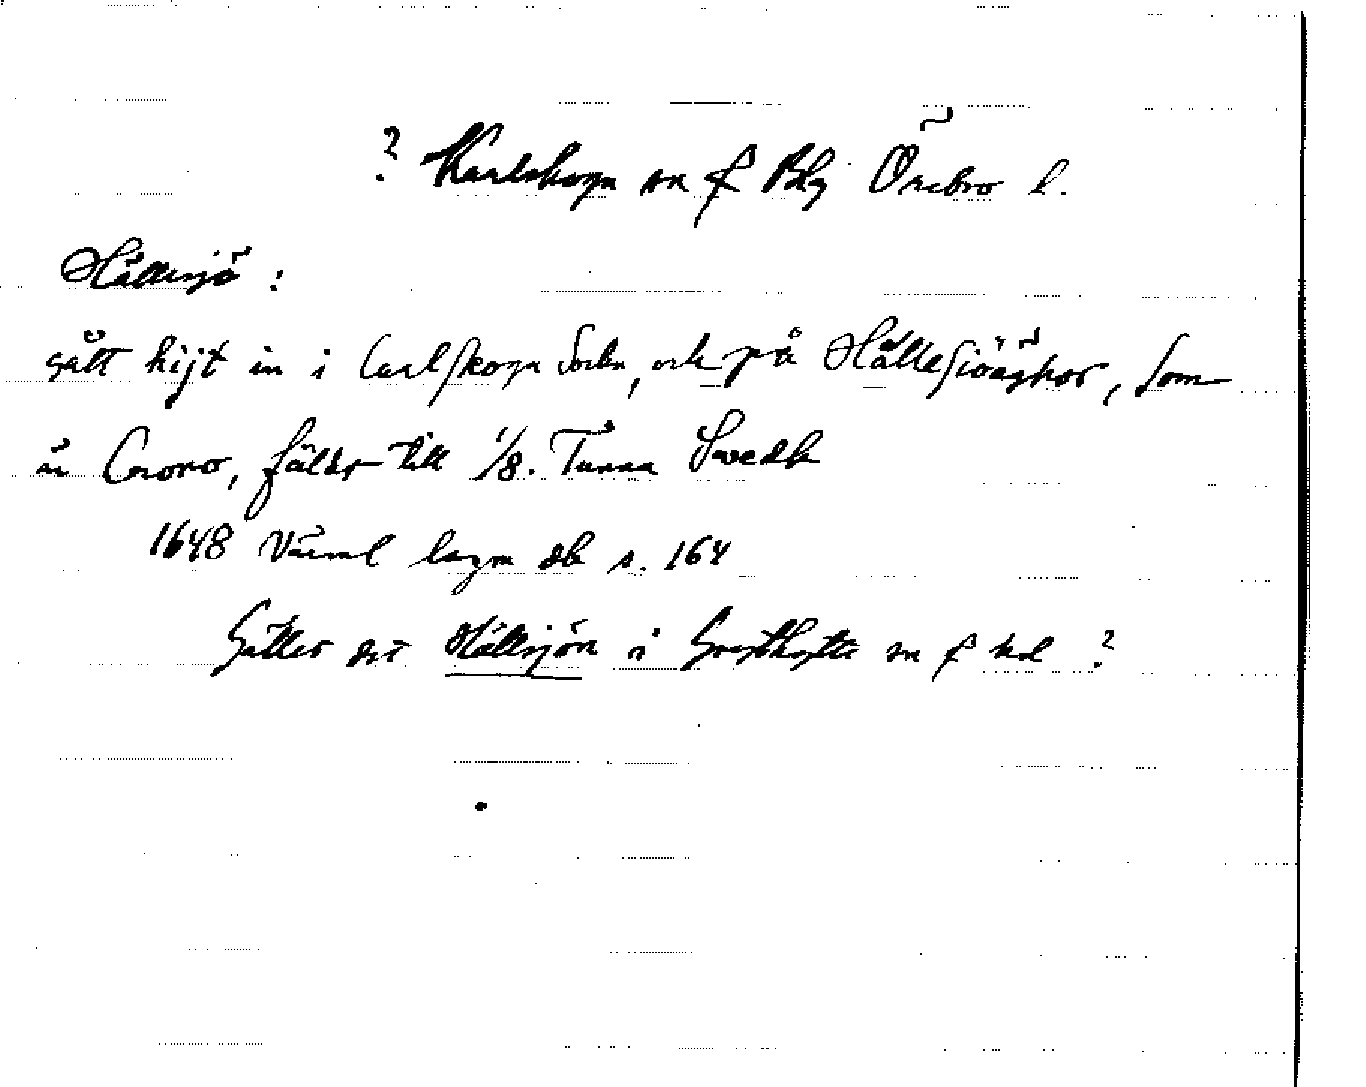 ? Karlskoga sn f Bhg Örebro l.
Hållsjö :
gått hijt in i Carlskoga Sochn, och på Hållesiöäghor, som
är Crono, fälder till 1/8. Tunna Swedh
1648 Värml lagm db s. 164
Gäller det Hällsjön i Grythytte sn f hd ?